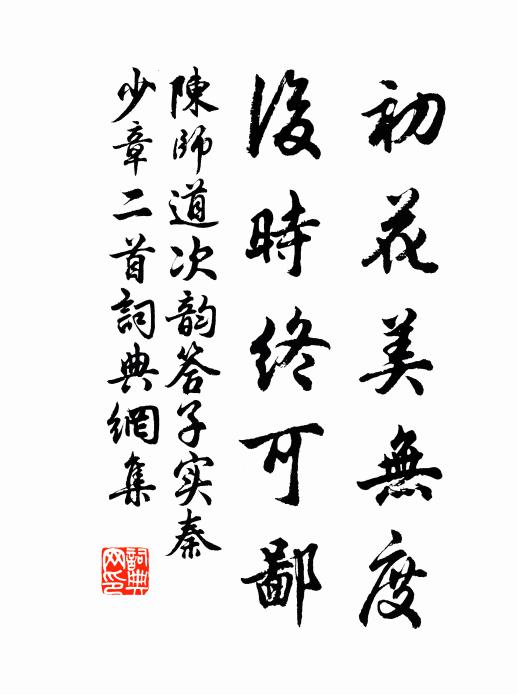 初花美無度
後時終可鄙
陳師道次韵答子实秦
少章二首詞典網集
詞典網印